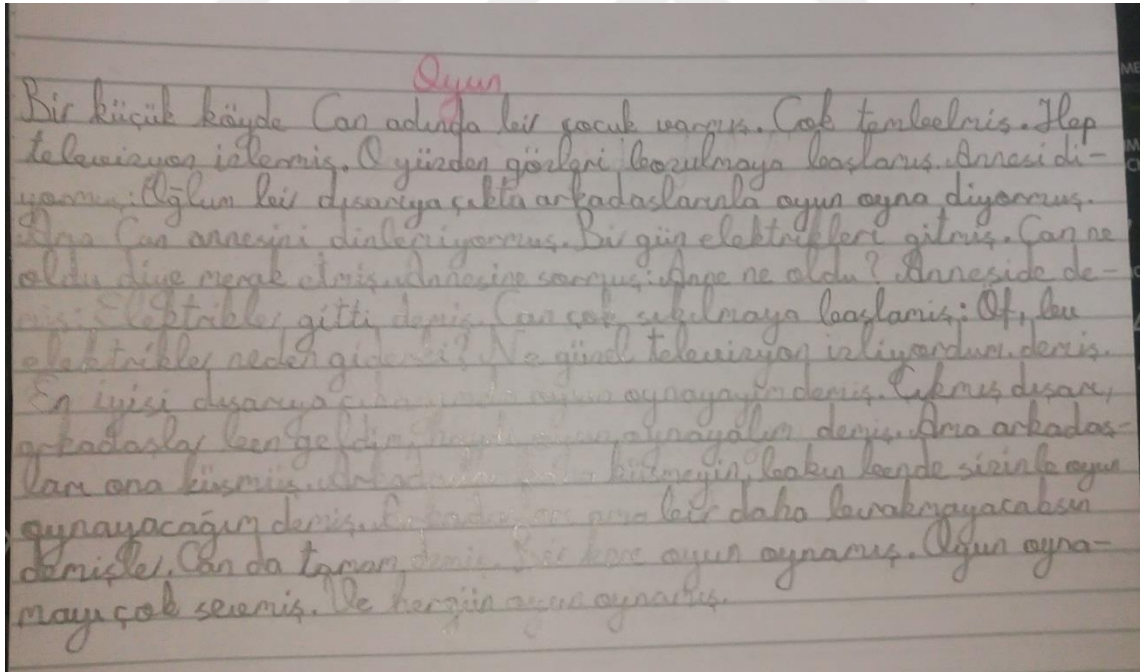 Oyun
Bir küçük köyde Can adında bir çocuk varmış. Çok tembelmis. Hep
televizyon izlermis. O yüzden gözleri bozulmaya başlamış. Annesi di-
yormuş: Oğlum bir dışarıya çıkta arkadaslarınla oyun oyna diyormuş.
Ama Can annesini dinlemiyormuş. Bi gün elektrikleri gitmiş. Can ne
oldu diye merak etmiş. Annesine sormuş: Anne ne oldu? Anneside de-
miş: Elektrikler gitti demiş. Can çok sıkılmaya baslamis: Of, bu
elektrikler neden gider ki? Ne güzel televizyon izliyordum demis.
En iyisi dışarıya oyun oynayayım demis. Çıkmış dışarı,
arkadaslar ben geldim, haydi oyun oynayalım demis. Ama arkadas-
ları ona küsmüş. küsmeyin, bakın bende sizinle oyun
oynayacağım demiş. ama bir daha bırakmayacaksın
demişler. Can da tamam demiş. oyun oynamış. Oyun oyna-
mayı çok sevmiş. Ve hergün oyun oynamış.